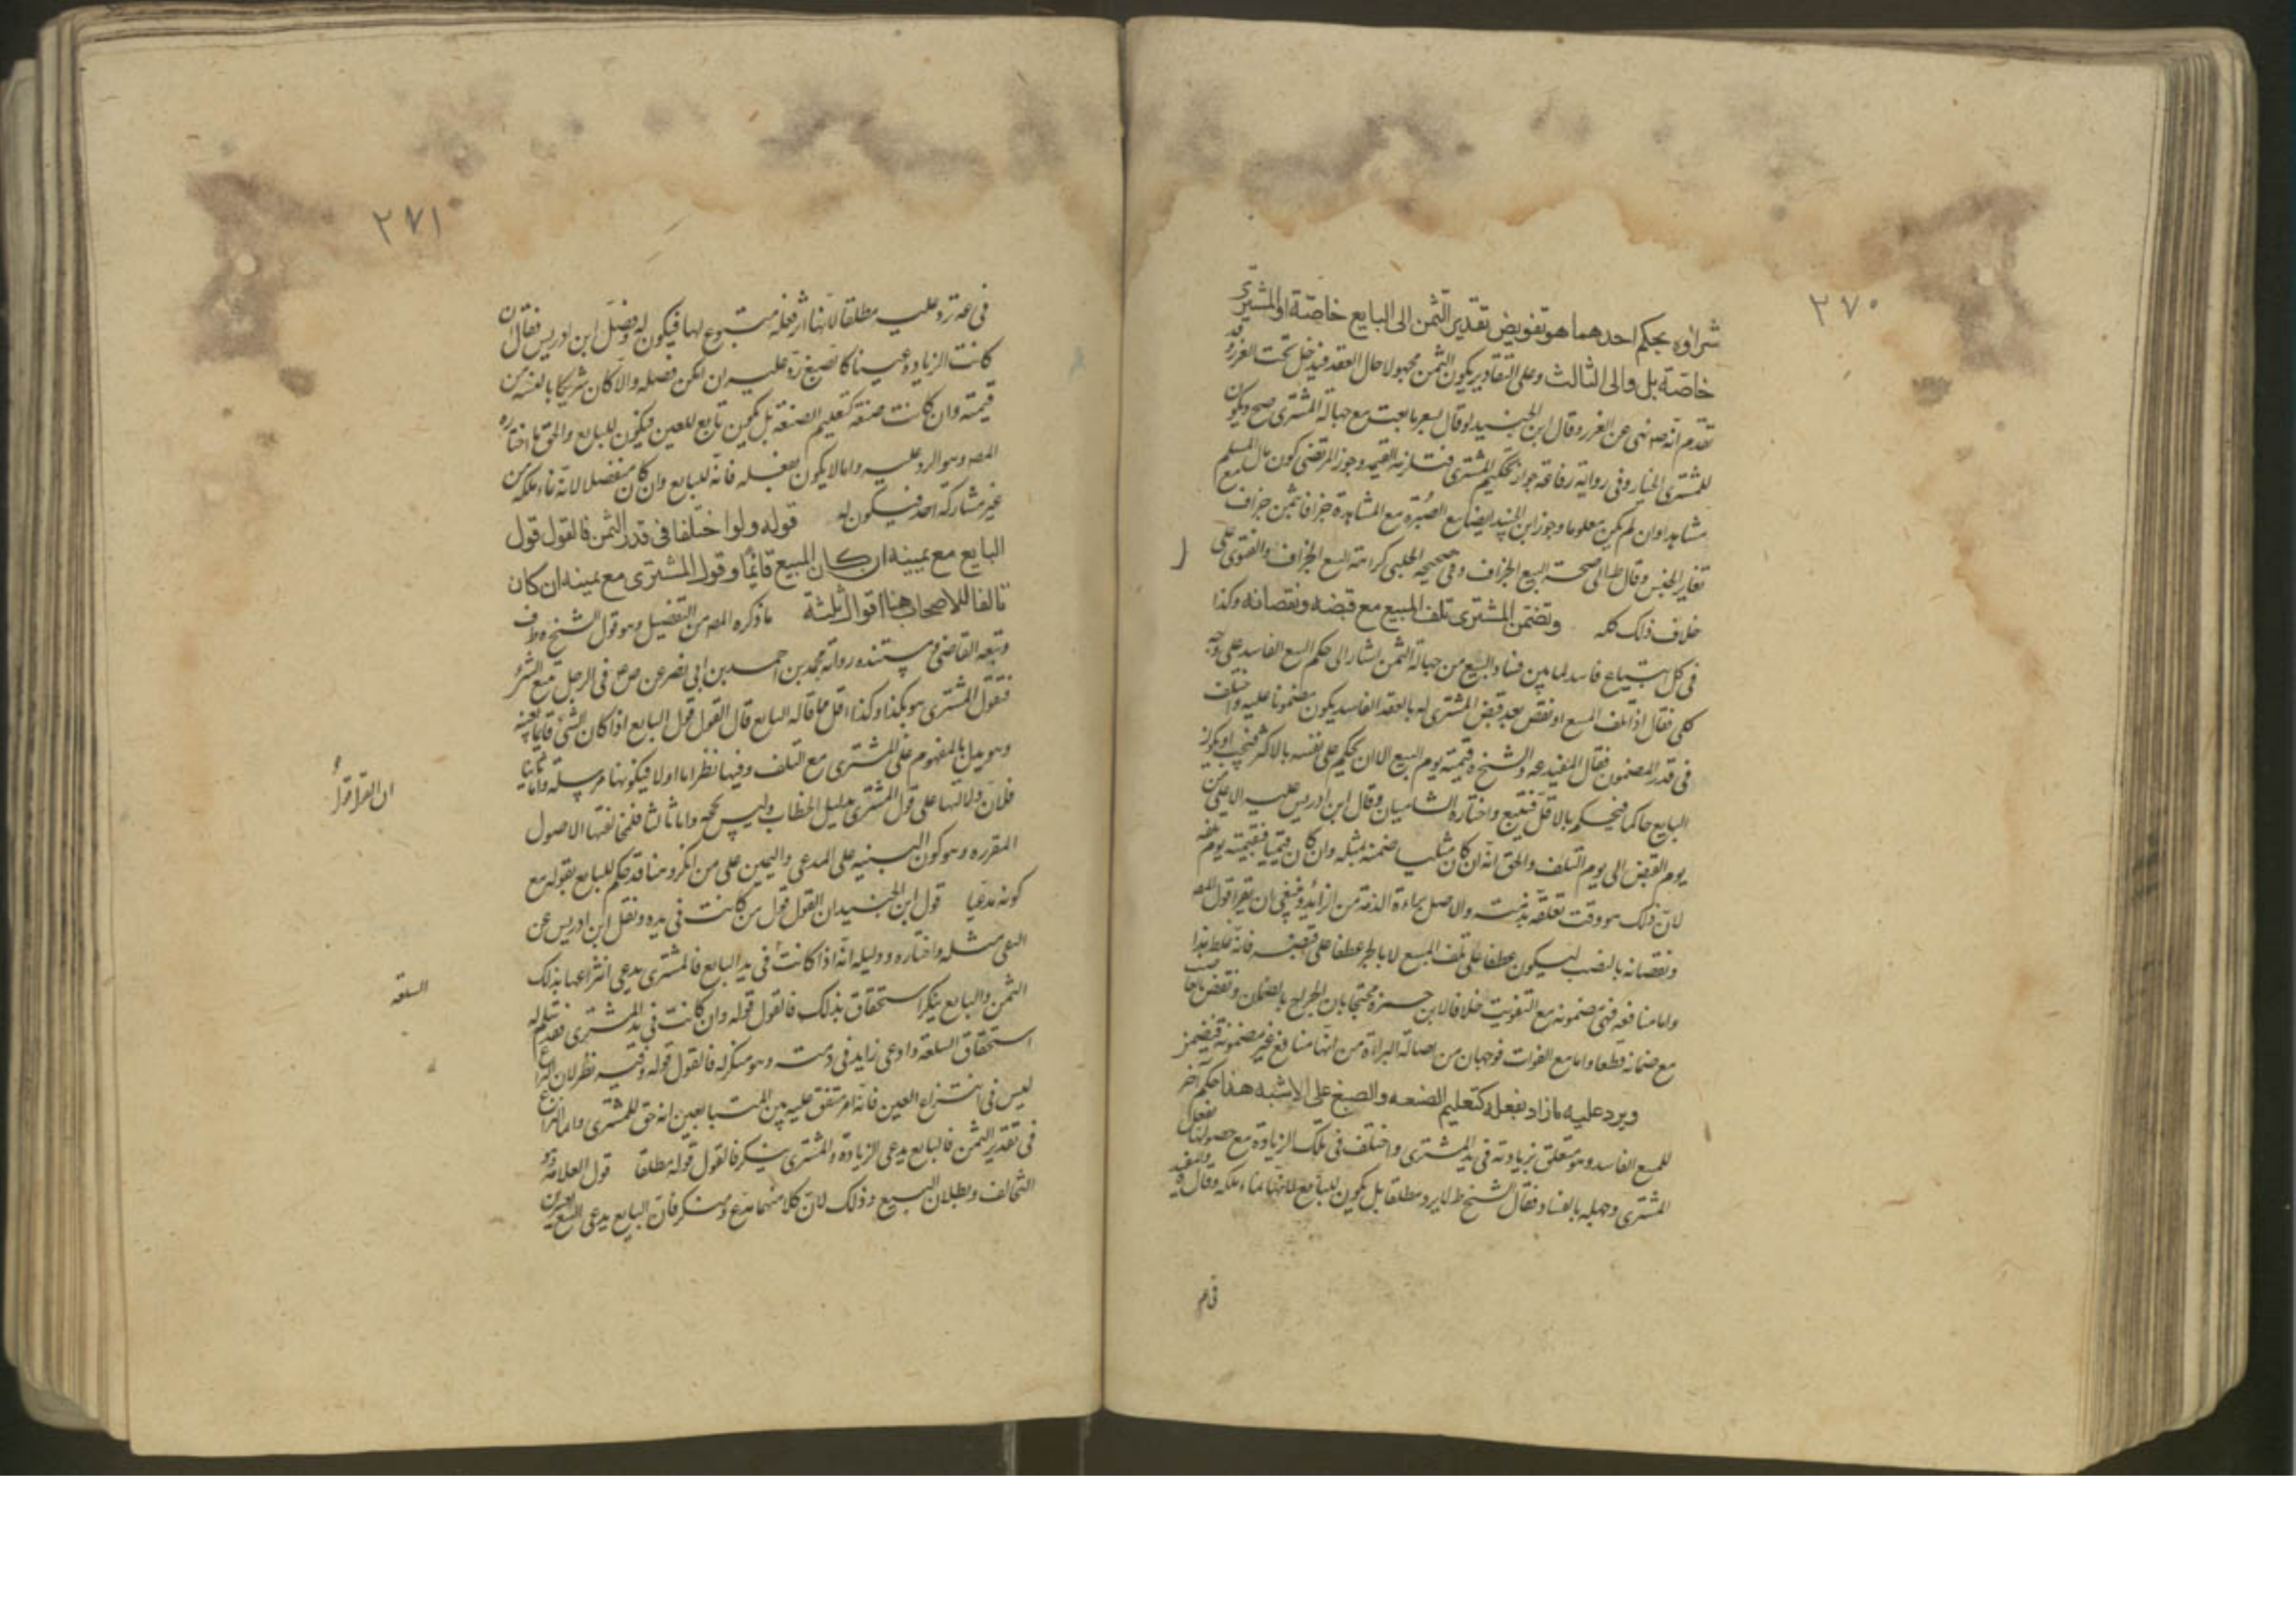 ٢٧٠
شراؤه بحكم احدهما هو تفويض تقدير الثمن الى البايع خاصة او المشترى
خاصة بل والى الثالث وعلى التقادير يكون الثمن مجهولا حال العقد فيدخل تحت الغرر وقد
تقدم انه ص نهى عن الغرر وقال ابن الجنيد لو قال بسعر ما بعت مع جهالة المشترى صح ويكون
للمشترى الخيار وفى رواية رفاعة جواز تحكيم المشترى فتلزمه القيمه وجوز المرتضى كون مال السلم
مشاهدا وان لم يكن معلوما وجوز ابن الجنيد ايضا بيع الصبره مع المشاهدة جزافا بثمن جزاف مع
تغاير الجنس وقال ط الى صحة البيع الجزاف وفى صحيحة الحلبى كراهة البيع الجزاف والفتوى على
خلاف ذلك كله ويضمن المشترى تلف المبيع مع قبضه ونقصانه وكذا
فى كل ابتياع فاسد لما بين فساد البيع من جهالة الثمن اشار الى حكم البيع الفاسد على وجه
كلى فقال اذا تلف المبيع او نقص بعد قبض المشترى له بالعقد الفاسد يكون مضمونا عليه واختلف
فى قدر المضمون فقال المفيد ره والشيخ ره قيمته يوم البيع الا ان يحكم على نفسه بالاكثر فيجب او يكون
البايع حاكما فيحكم بالاقل فيتبع واختاره الشاميان وقال ابن ادريس عليه الاعلى من
يوم القبض الى يوم التلف والحق انه ان كان مثليا ضمنه بمثله وان كان قيميا فقيمته يوم تلفه
لان ذلك هو وقت تعلقه بذمته والاصل براءة الذمة من الزائد وينبغى ان يقرا قول المصه
ونقصانه بالنصب ليكون عطفا على تلف المبيع لا بالجر عطفا على قبضه فانه غلط هذا
واما منافعه فهى مضمونه مع التفويت خلافا لابن حمزه محتجا بان الخراج بالضمان ونقض بالغاصب
مع ضمانه قطعا واما مع الفوات فوجهان من اصالة البراءة من انها منافع غير مضمونة فيضمن
ويرد عليه ما زاد بفعله كتعليم الصنعه والصبغ على الاشبه هذا حكم آخر
للمبيع الفاسد وهو متعلق بزيادته فى يد المشترى واختلف فى تلك الزيادة مع حصولها بفعل
المشترى وجهله بالفساد فقال الشيخ ط لا يرد مطلقا بل يكون للبايع لانها نماء ملكه وقال فى والمفيد
فى عه
٢٧١
فى عه ترد عليه مطلقا لانها اثر فعله متبوع لها فيكون له وفصل ابن ادريس فقال ان
كانت الزيادة عينا كالصبغ رد عليه ان امكن فصله والا كان شريكا بالنسبه من
قيمته وان كانت صنعة كتعليم الصنعة بل يكون تابع للعين فيكون للبايع والحق ما اختاره
المصه وهو الرد عليه واما لا يكون بفعله فانه للبايع وان كان منفصلا لانه نماء ملكه من
غير مشاركة احد فيكون له قوله ولو اختلفا فى قدر الثمن فالقول قول
البايع مع يمينه ان كان المبيع قائما وقول المشترى مع يمينه ان كان
تالفا للاصحاب هنا اقوال ثلثة ما ذكره المصه من التفصيل وهو قول الشيخ ط ف
وتبعه القاضى ومستنده رواية محمد بن احمد بن ابى نصر عن ص ع فى الرجل يبيع الشئ
فيقول المشترى هو بكذا وكذا اقل مما قاله البايع قال القول قول البايع اذا كان الشئ قائما بعينه
وهو يدل بالمفهوم على المشترى مع التلف وفيها نظر اما اولا فلكونها مرسلة واما ثانيا
فلان دلالتها على قول المشترى بدليل الخطاب وليس بحجه واما ثالثا فلمخالفتها الاصول
المقرره وهو كون البينه على المدعى واليمين على من انكر وهنا قد حكم للبايع بقوله مع
كونه مدعيا قول ابن الجنيد ان القول قول من كانت فى يده ونقل ابن ادريس عن
التقى مثله واختاره ودليله انه اذا كانت فى يد البايع فالمشترى يدعى انتزاعها بذلك
الثمن والبايع ينكر استحقاق بذلك فالقول قوله وان كانت فى يد المشترى فقد سلم له
استحقاق السلعة وادعى زايد فى ذمته وهو منكر له فالقول قوله وفيه نظر لان النزاع
ليس فى انتزاع العين فانه امر متفق عليه بين المتبايعين انه حق للمشترى وانما النزاع
فى تقدير الثمن فالبايع يدعى الزيادة والمشترى ينكر فالقول قوله مطلقا قول العلامه وهو
التحالف وبطلان البيع وذلك لان كلا منهما مدع ومنكر فان البايع يدعى
السلعه